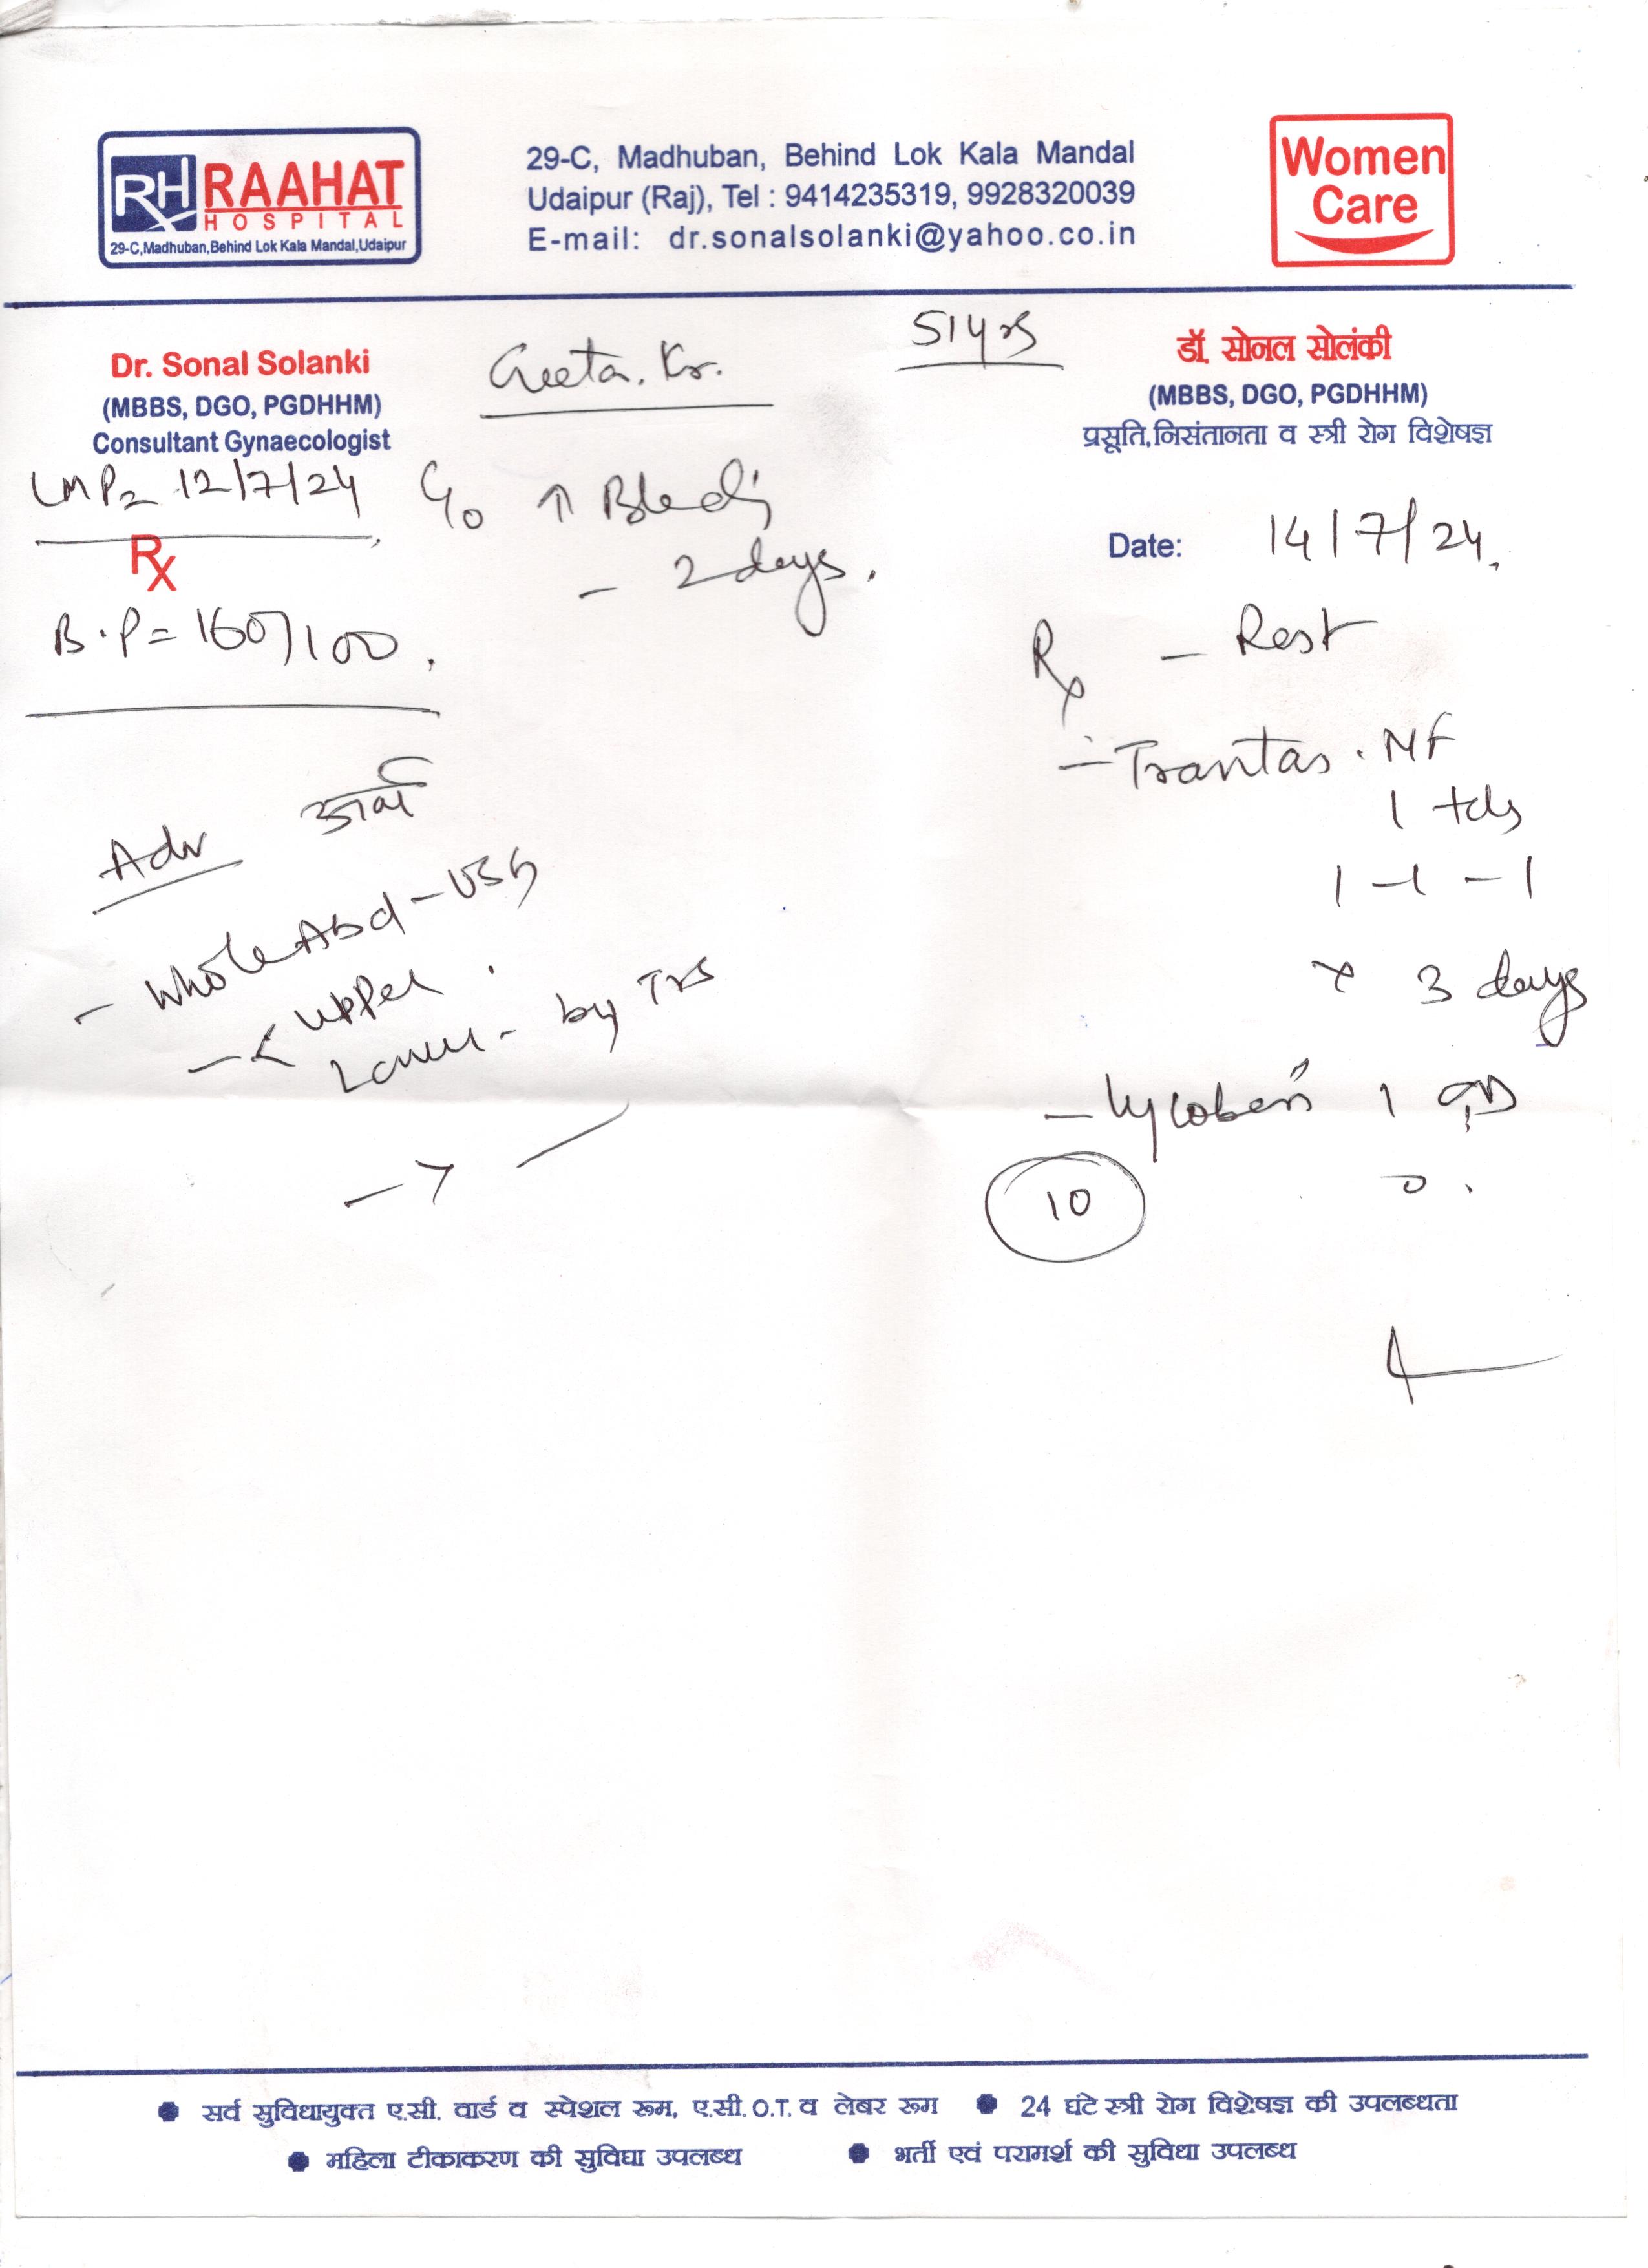 RH RAAHAT
HOSPITAL
29-C,Madhuban,Behind Lok Kala Mandal,Udaipur
29-C, Madhuban, Behind Lok Kala Mandal
Udaipur (Raj), Tel : 9414235319, 9928320039
E-mail: dr.sonalsolanki@yahoo.co.in
Women
Care
Dr. Sonal Solanki
(MBBS, DGO, PGDHHM)
Consultant Gynaecologist
Geeta. Kr.
51 yrs
डॉ. सोनल सोलंकी
(MBBS, DGO, PGDHHM)
प्रसूति,निसंतानता व स्त्री रोग विशेषज्ञ
LMP= 12/7/24
C/o ↑ Bleeding
- 2 days.
Date: 14/7/24
Rx
B.P = 160/100.
Rx - Rest
- Trantas. MF
1 tds
1 -1 - 1
x 3 days
Adv
- Whole Abd - USG
- < Upper.
Lower - by TVS
1 OD
10
सर्व सुविधायुक्त ए.सी. वार्ड व स्पेशल रूम, ए.सी. O.T. व लेबर रूम
24 घंटे स्त्री रोग विशेषज्ञ की उपलब्धता
महिला टीकाकरण की सुविधा उपलब्ध
भर्ती एवं परामर्श की सुविधा उपलब्ध